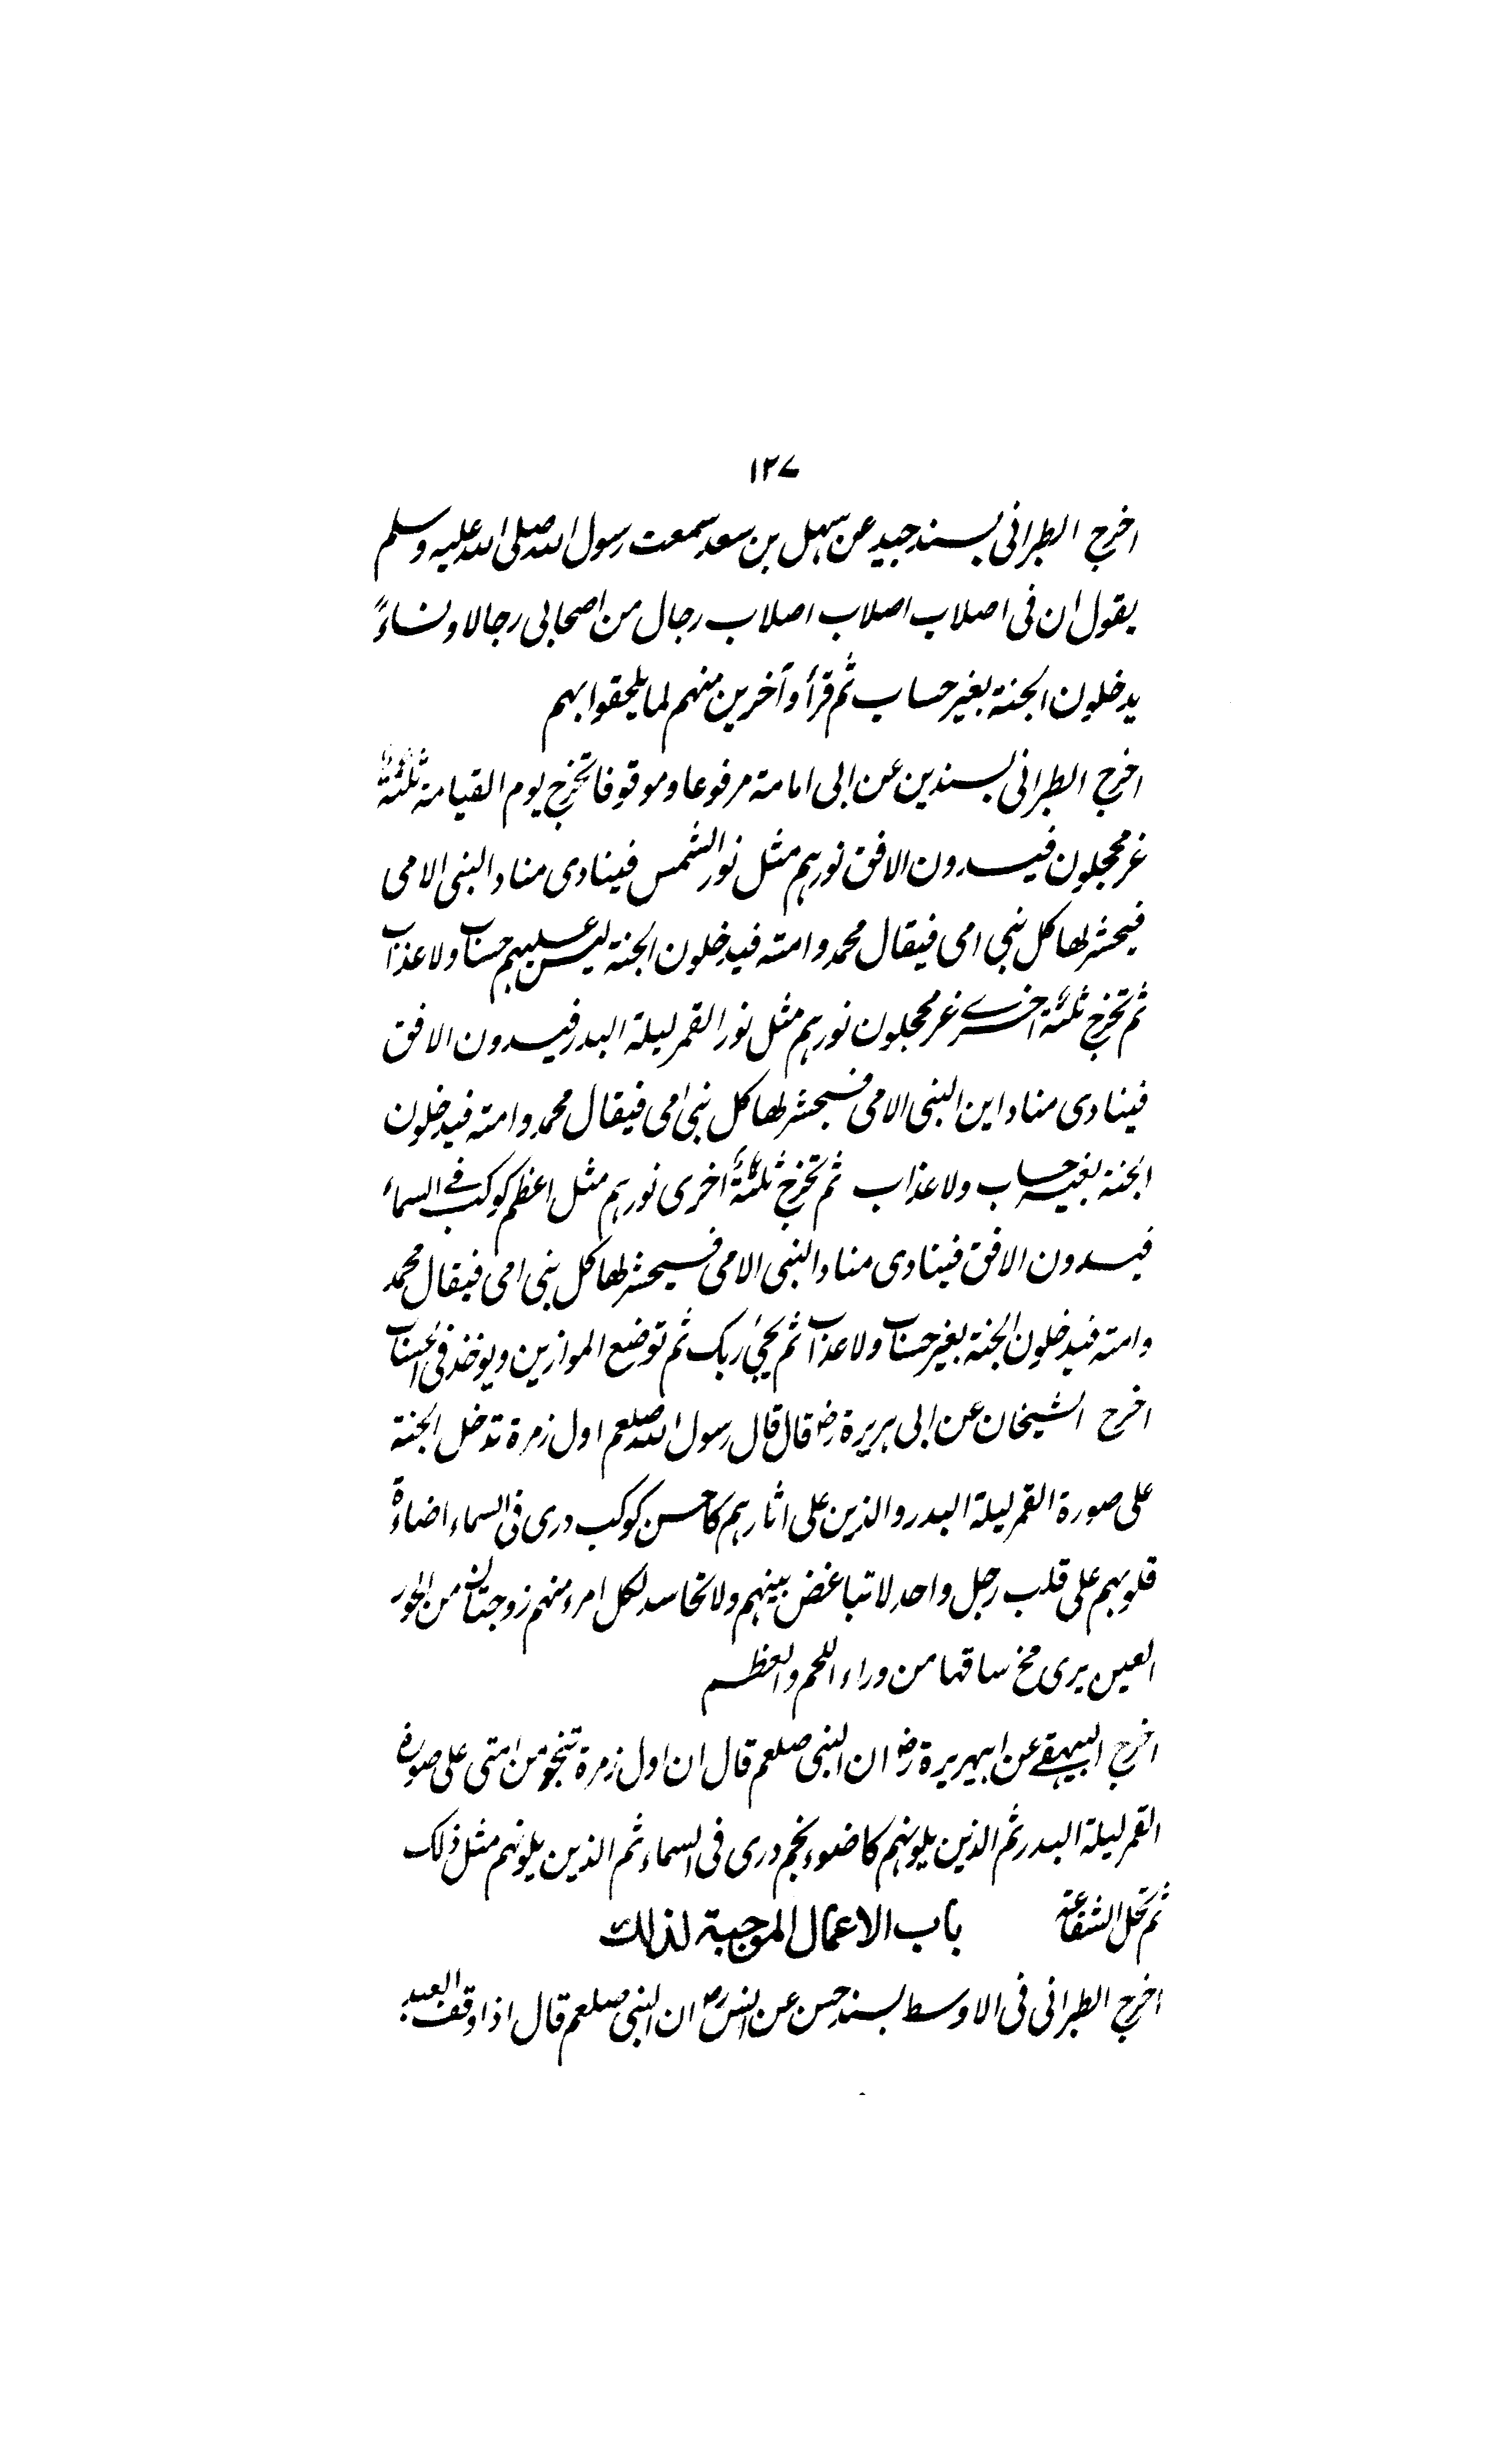 ١٢٧
اخرج الطبرانی بسند جید عن سهل بن سعد سمعت رسول الله صلی الله علیه وسلم
یقول ان فی اصلاب اصلاب اصلاب رجال من اصحابی رجالا ونساءً
یدخلون الجنة بغیر حساب ثم قرأ وآخرین منهم لما یلحقوا بهم
اخرج الطبرانی بسندین عن ابی امامة مرفوعا وموقوفا تخرج یوم القیامة ثلثة
غر محجلون فیسدون الافق نورهم مثل نور الشمس فینادی مناد النبی الامی
فیحشر لها کل نبی امی فیقال محمد وامته فیدخلون الجنة لیس علیهم حساب ولا عذاب
ثم تخرج ثلثة اخرے غر محجلون نورهم مثل نور القمر لیلة البدر فیسدون الافق
فینادی مناد این النبی الامی فیحشر لها کل نبی امی فیقال محمد وامته فیدخلون
الجنة بغیر حساب ولا عذاب ثم تخرج ثلثة اخری نورهم مثل اعظم کوکب فے السماء
فیسدون الافق فینادی مناد النبی الامی فیحشر لها کل نبی امی فیقال محمد
وامته فیدخلون الجنة بغیر حساب ولا عذاب ثم یجئ ربک ثم توضع الموازین ویوخذ فی الحساب
اخرج الشیخان عن ابی هریرة رض قال قال رسول الله صلعم اول زمرة تدخل الجنة
علی صورة القمر لیلة البدر والذین علی اثارهم کاحسن کوکب دری فی السماء اضاءةً
قلوبهم علی قلب رجل واحد لا تباغض بینهم ولا تحاسد لکل امرء منهم زوجتان من الحور
العین یری مخ ساقها من وراء اللحم والعظم
اخرج البیهقے عن ابیهریرة رض ان النبی صلعم قال ان اول زمرة تنجو من امتی علی صورة
القمر لیلة البدر ثم الذین یلونهم کاضوء نجم دری فی السماء ثم الذین یلونهم مثل ذلک
ثم تحل الشفاعة باب الاعمال الموجبة لذلك
اخرج الطبرانی فی الاوسط بسند حسن عن انس رض ان النبی صلعم قال اذا وقف العبد